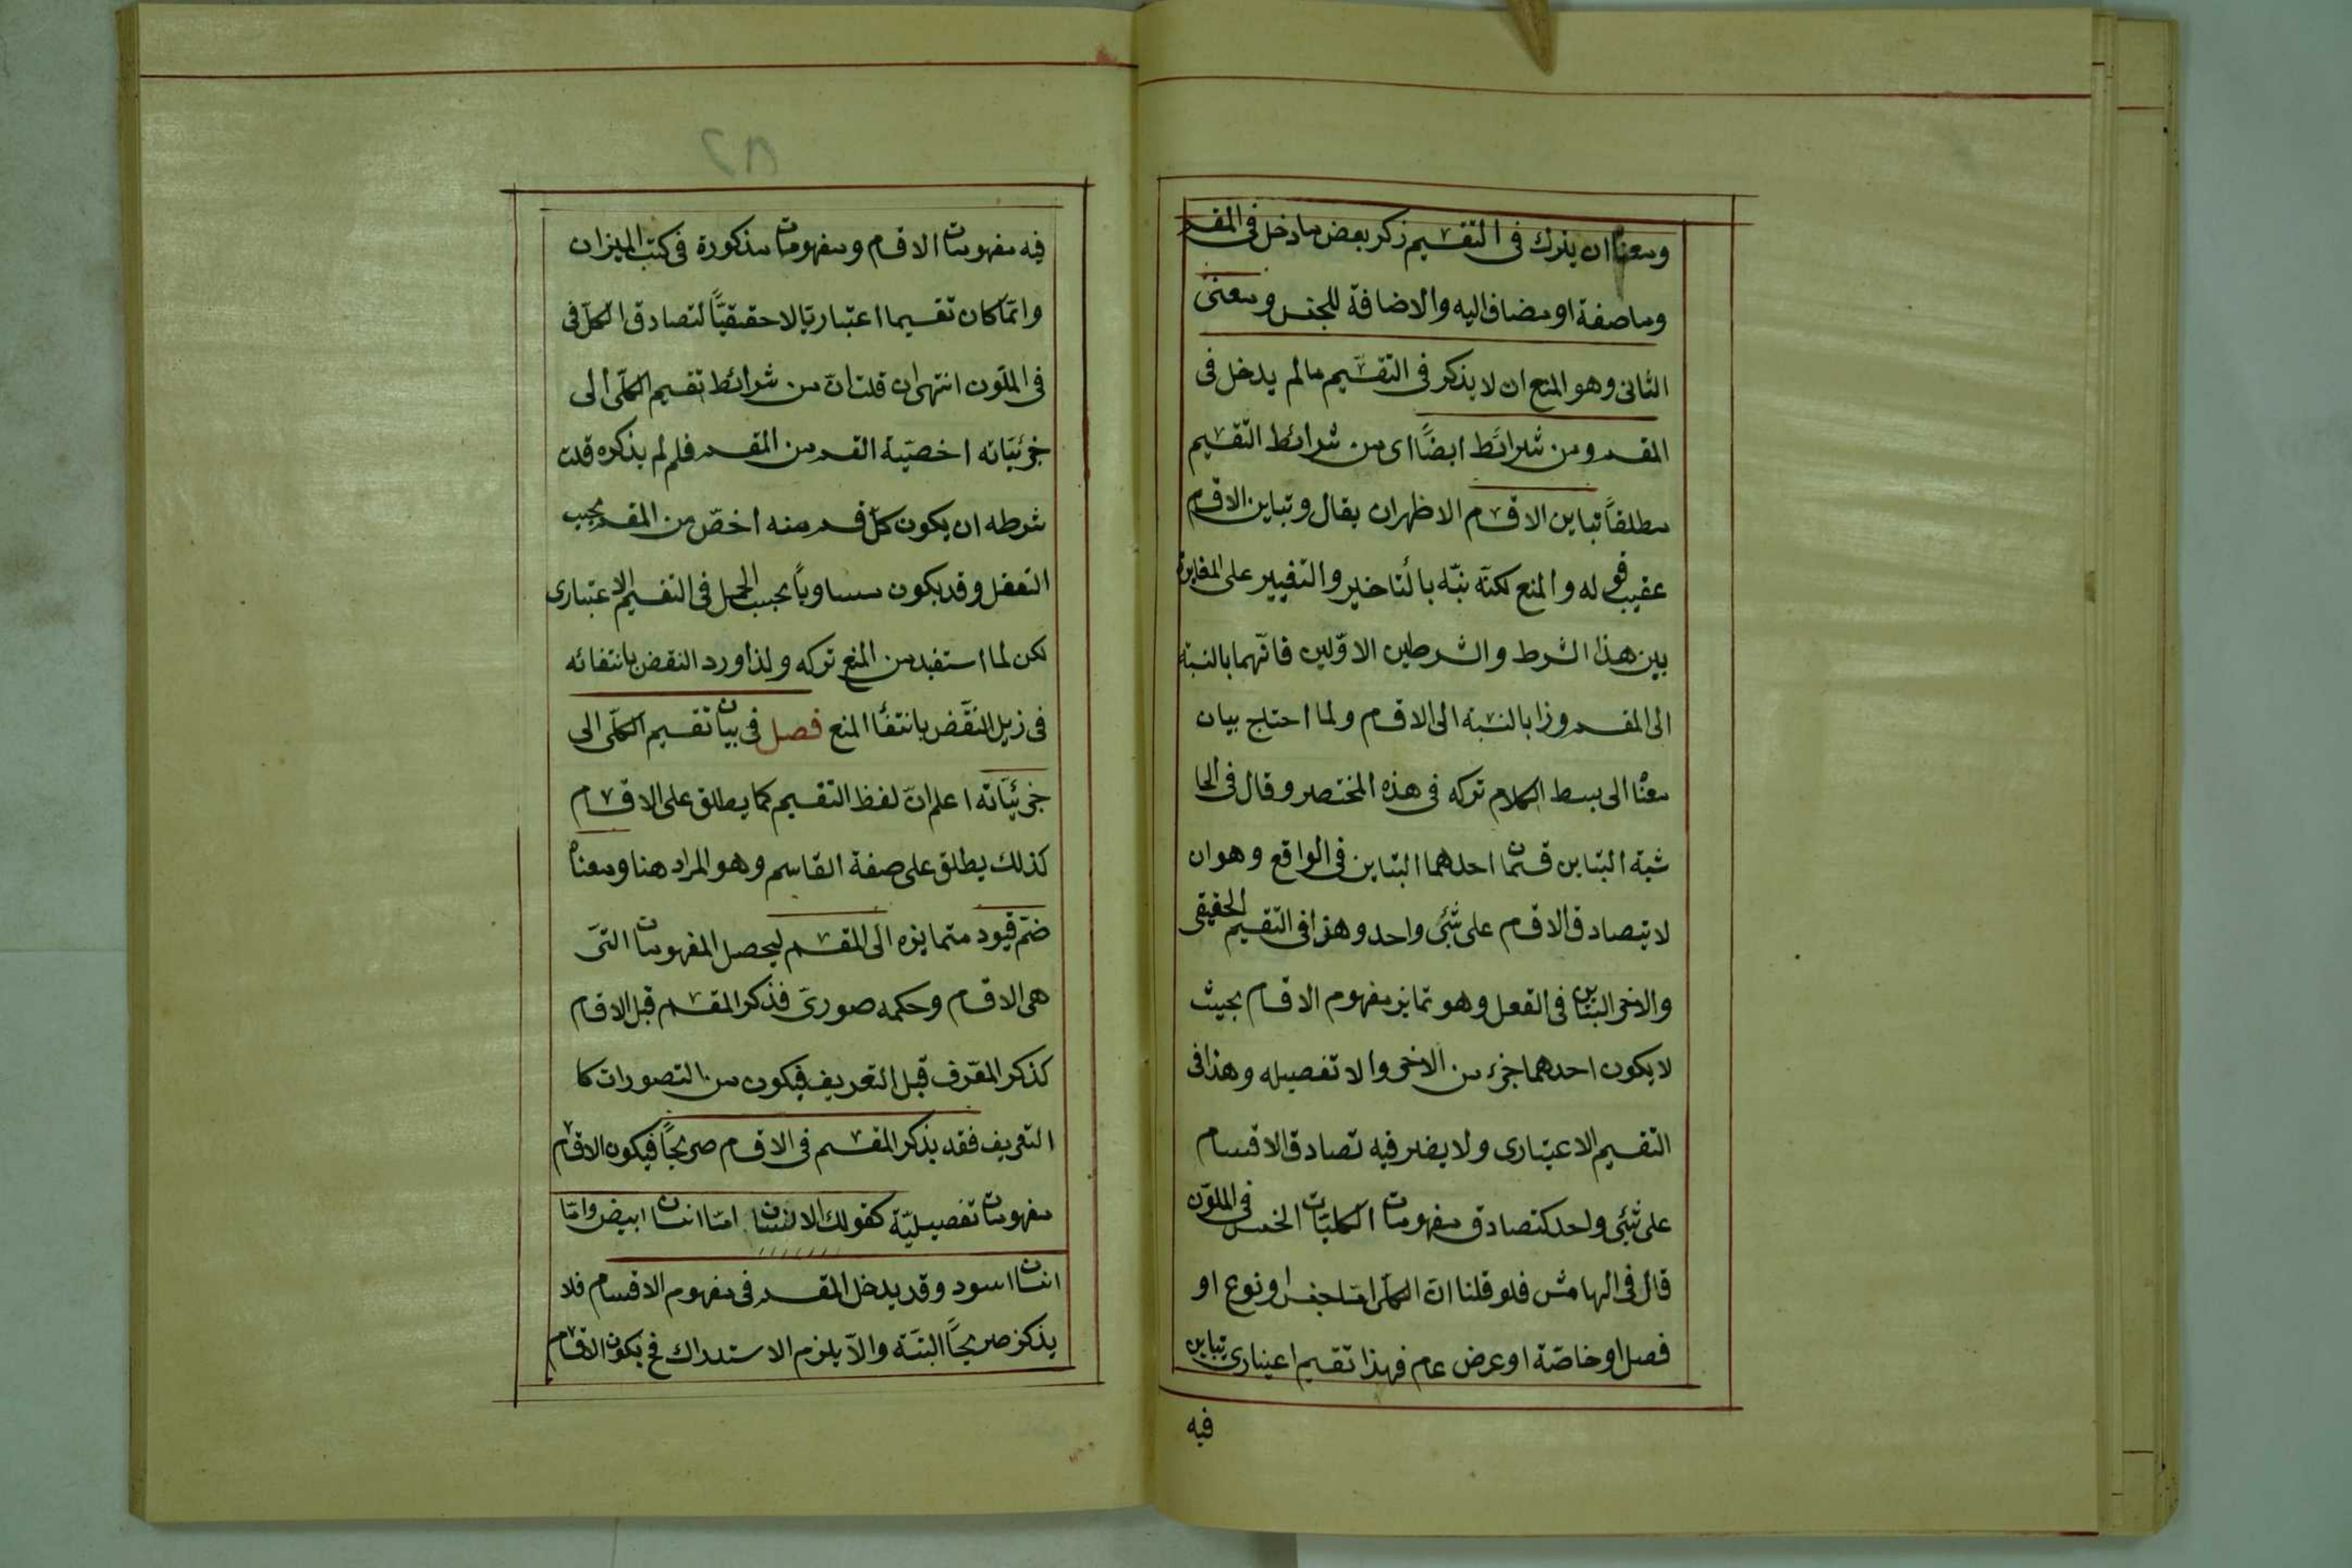 ومعناه ان يترك فى التقسيم ذكر بعض ما دخل فى المقسم
وما صفة او مضاف اليه والاضافة للجنس ومعنى
الثانى وهو المنع ان لا يذكر فى التقسيم ما لم يدخل فى
المقسم ومن شرائط ايضًا اى من شرائط التقسيم
مطلقًا تباين الاقسام الاظهر ان يقال وتباين الاقسام
عقيب قوله والمنع لكنّه نبّه بالتأخير والتغيير على المغايرة
بين هذا الشرط والشرطين الاوّلين فانّهما بالنسبة
الى المقسم وذا بالنسبة الى الاقسام ولما احتاج بيان
معناه الى بسط الكلام تركه فى هذه المختصر وقال فى الحا
شية التباين قسمان احدهما التباين فى الواقع وهو ان
لا يتصادق الاقسام على شئ واحد وهذا فى التقسيم الحقيقى
والاخر التباين فى العقل وهو تمايز مفهوم الاقسام بحيث
لا يكون احدهما جزء من الاخر والا تفصيله وهذا فى
التقسيم الاعتبارى ولا يضر فيه تصادق الاقسام
على شئ واحد كتصادق مفهومات الكليات الخمس فى الملوّن
قال فى الهامش فلو قلنا انّ الكلّى امّا جنس او نوع او
فصل او خاصّة او عرض عام فهذا تقسيم اعتبارى يتباين
فيه
٢٨
فيه مفهومات الاقسام ومفهومات مذكورة فى كتب الميزان
وانّما كان تقسيما اعتباريّا لا حقيقيًّا لتصادق الكلّ فى
فى الملّون انتهى ان قلت انّ من شرائط تقسيم الكلّى الى
جزئيّاته اخصيّة القسم من المقسم فلم لم يذكره قلت
شرطه ان يكون كلّ قسم منه اخصّ من المقسم بحسب
التعقل وقد يكون مساويًا بحسب الحمل فى التقسيم الاعتبارى
لكن لما استفيد من المنع تركه ولذا ورد النقض بانتفائه
فى ذيل النقض بانتفاء المنع فصل فى بيان تقسيم الكلّى الى
جزئيّاته اعلم انّ لفظ التقسيم كما يطلق على الاقسام
كذلك يطلق على صفة القاسم وهو المراد هنا ومعناه
ضمّ قيود متمايزه الى المقسم ليحصل المفهومات التى
هى الاقسام وحكمه صورى فذكر المقسم قبل الاقسام
كذكر المعّرف قبل التعريف فيكون من التصورات كا
التعريف فقد يذكر المقسم فى الاقسام صريحًا فيكون الاقسام
مفهومات تفصيليّة كقولك الانسان امّا انسان ابيض وامّا
انسان اسود وقد يدخل المقسم فى مفهوم الاقسام فلا
يذكر صريحًا البتّة والّا يلزم الاستدراك فح يكون الاقسام